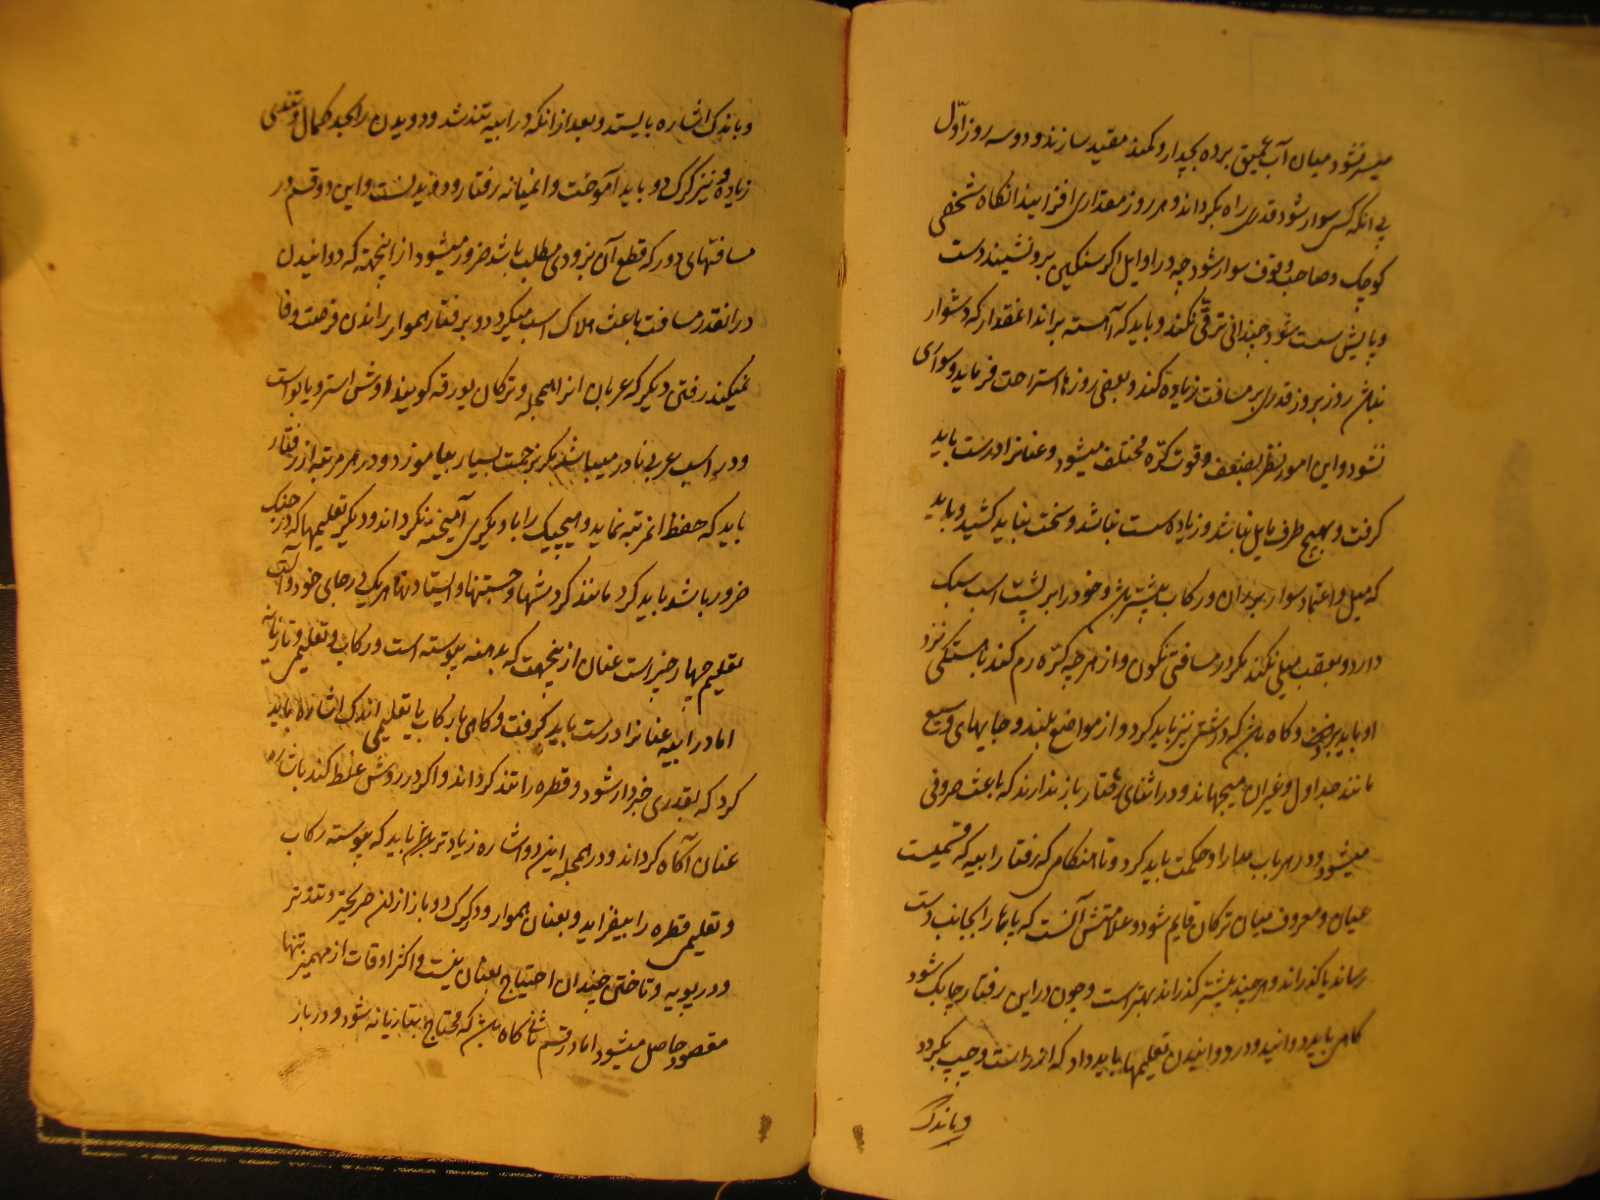 میسر نشود میان آب عمیق برده بجدار و کمند مقید سازند و دو سه روز اول
بی آنکه کسی سوار شود قدری راه بگرداند و هر روز مقداری افزایند آنکاه شخصی
کوچک و صاحب وقوف سوار شود چه در اوایل اکر سنکین برو نشیند دست
و پایش سست شود چندانی ترقی نکند و باید که آهسته براند آنقدار که دشوار
نباشد روز بروز قدری بر مسافت زیاده کند و بعضی روزها استراحت فرماید و سواری
نشود و این امور نظر بضعف و قوت کره مختلف میشود و عنانرا درست باید
کرفت و بهیچ طرف مایل نباشد و زیاده سست نباشد و سخت نباید کشید و باید
که میل و اعتماد سوار بر ران و رکاب بیشتر باشد و خود را بر پشت اسب سبک
دارد و بعقب میل نکند مکر در مسافتی نکون و از هر چه کره رم کند باهستکی نزد
او باید برد و کاه باشد که درشتی نیز باید کرد و از مواضع بلند و جایهای وسیع
مانند جداول و غیران میجهاند و در اثنای رفتار باز ندارند که باعث حرونی
میشود و در هر باب مدارا و حکمت باید کرد و تا هنکامی که رفتار رابعیه که قسمیست
عیان و معروف میان ترکان قایم شود و علامتش آنست که پا را بجای دست
رساند یا کذراند و هر چند بیشتر کذراند بهتر است و چون در این رفتار چابک شود
کاهی باید دوانید و در دوانیدن تعلیمها باید داد که از راست و چپ بکردد
و باندک
و باندک اشاره بایستد و بعد از آنکه در رابعیه تند شد و دویدن را بحد کمال و تندی
زیاده و نیز کرک دو باید آموخت و این میانه رفتار و دویدنست و این دو قسم در
مسافتهای دور که قطع آن بزودی مطلب باشد ضرور میشود از اینجهة که دوانیدن
در آنقدر مسافت باعث هلاک اسب میکردد و برفتار هموار راندن فرصت وفا
نمیکند رفتی دیگر که عربان انرا هملجه و ترکان یورقه کویند روش استر و یابوست
و در اسب عربی نادر میباشد مکر بزحمت بسیار بیاموزد و در هر مرتبه از رفتار
باید که حفظ انمرتبه نماید و هیچیک را با دیکری آمیخته نکرداند و دیکر تعلیمها که در جنک
ضرور باشد باید کرد مانند کردشها و جستنها و ایستادنها هر یک بر جای خود و آلت
تعلیم چهار چیز است عنان از اینجهت که بدهنه پیوسته است و رکاب و تعلیمی و تازیانه
اما در رابعیه عنانرا درست باید کرفت و کاهی با رکاب یا تعلیمی اندک اشاره باید
کرد که بقدری خبردار شود و قطره را تند کرداند و اکر در روش غلط کند باشاره
عنان آکاه کرداند و در هملجه این دو اشاره زیادتر باید که پیوسته رکاب
و تعلیمی قطره را بیفزاید و بعنان هموار رود و کرک دو باز ازان صریحتر و تندتر
و در پویه و تاختن چندان احتیاج بعنان نیست و اکثر اوقات از مهمیز تنها
مقصود حاصل میشود اما در قسم ثانی کاه باشد که محتاج بتازیانه شود و در باز